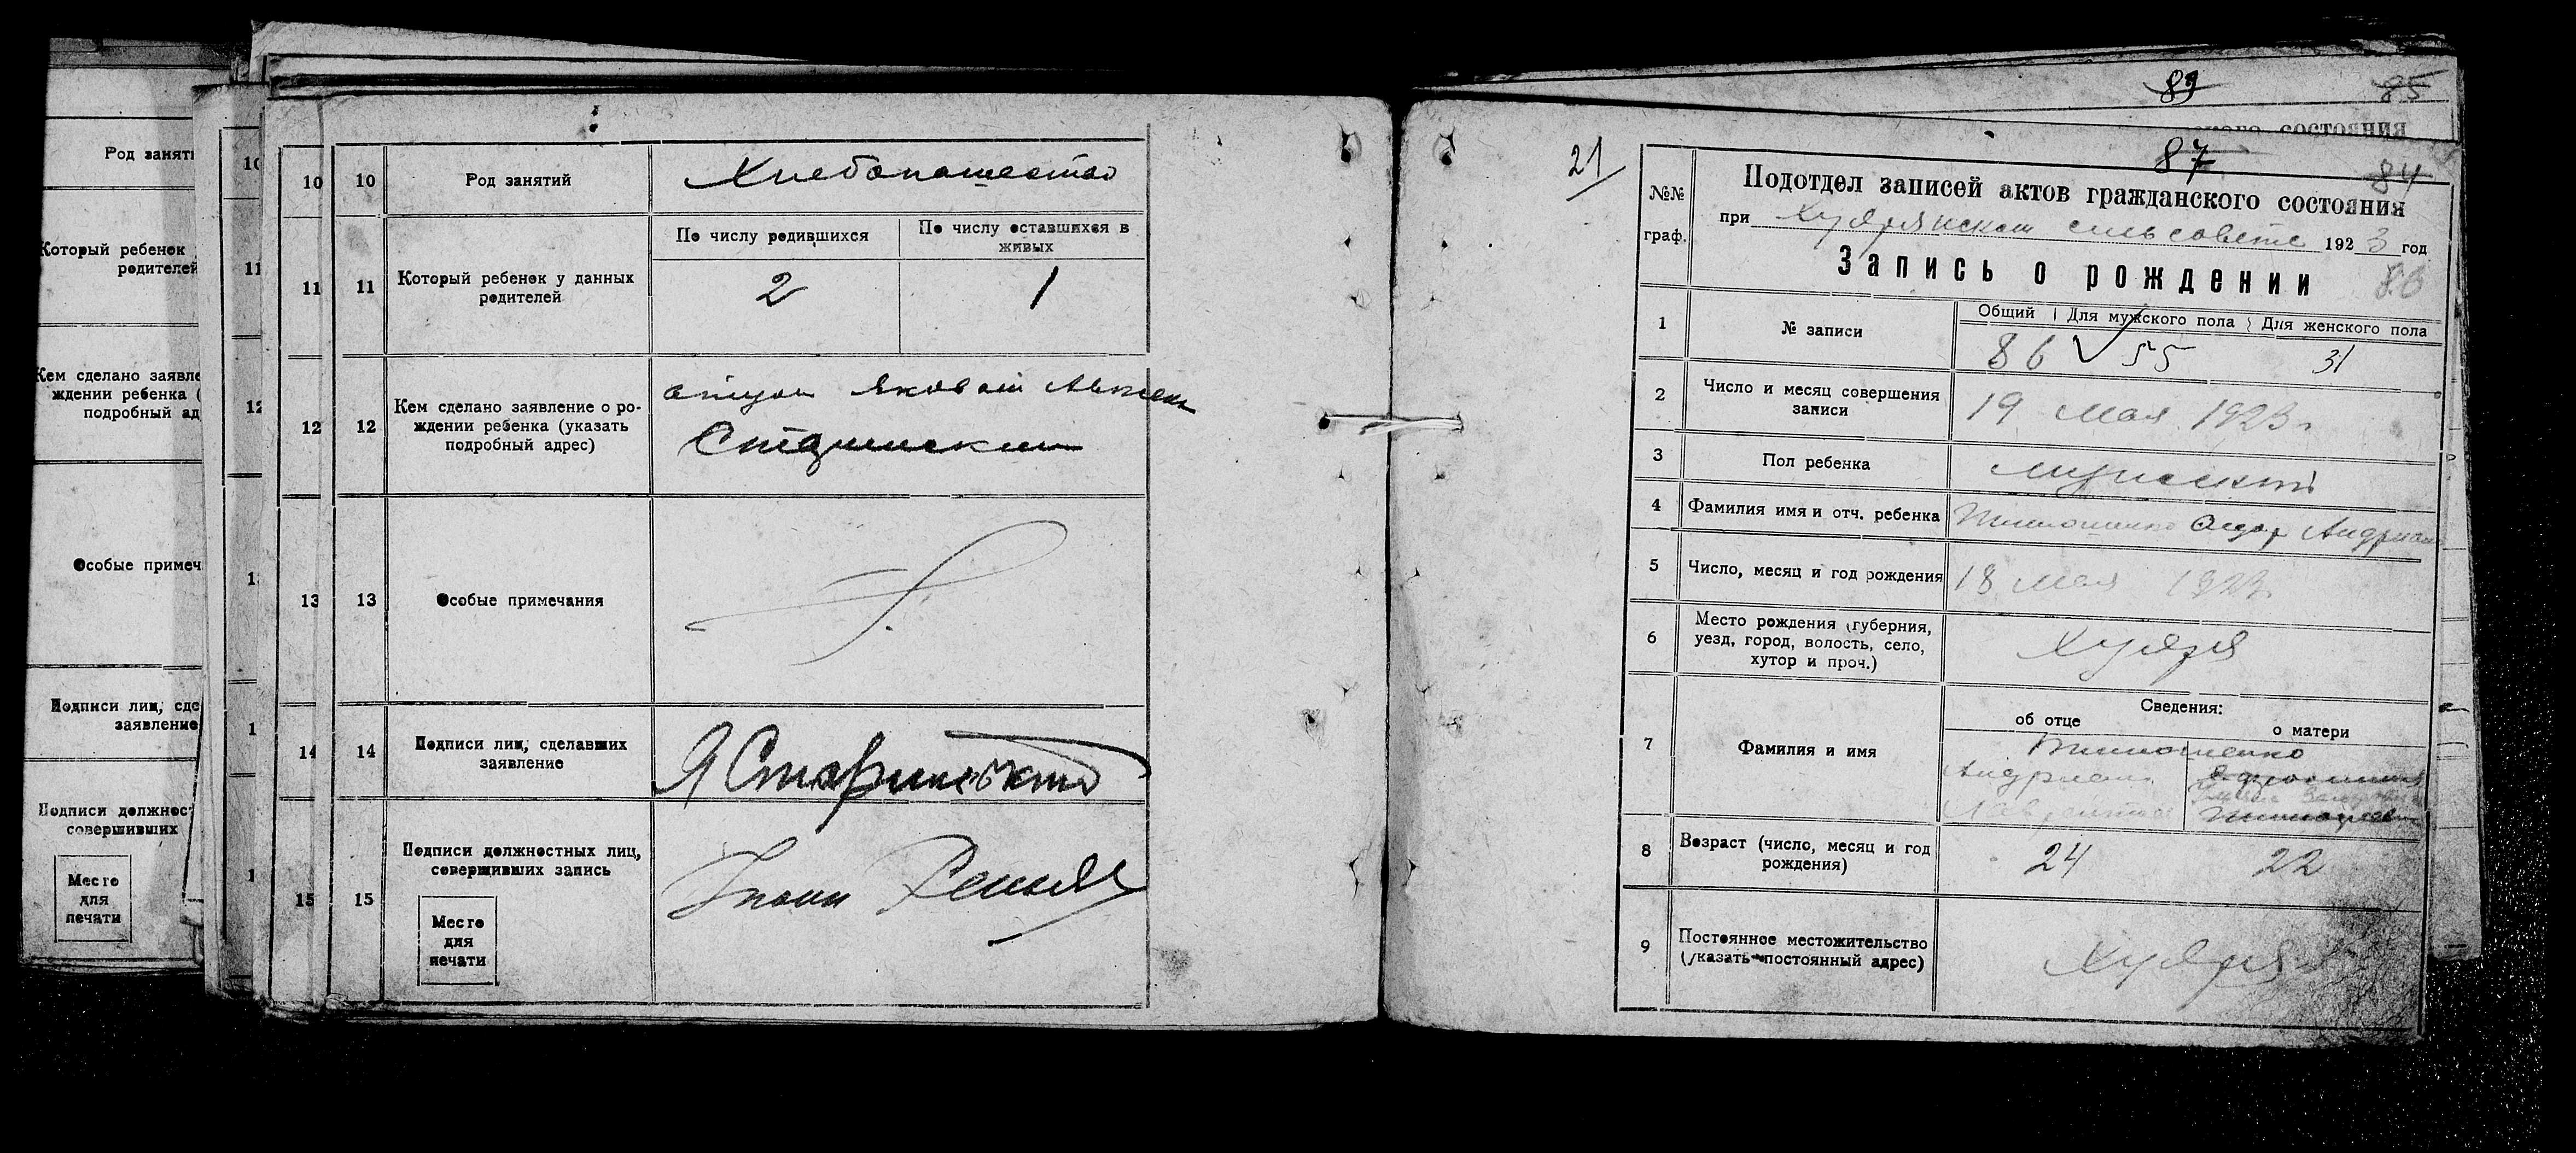 Род заняти
Который ребенок
родителей
Кем сделано заявле
ждении ребенка (
подробный ад
Особые примеч
Подписи лиц, сде
заявление
Подписи должнос
совершивших
Место
для
печати
10
11
12
1
1
1
10
11
12
13
14
15
10 Род занятий Хлебопашество
11 Который ребенок у данных
родителей
По числу родившихся По числу оставшихся в
живых
2 1
12 Кем сделано заявление о ро-
ждении ребенка (указать
подробный адрес)
отцом Яковом
13 Особые примечания
14 Подписи лиц, сделавших
заявление
Я
15 Подписи должностных лиц,
совершивших запись
Место
для
печати
89 85
состояния
21
87
84
№№
граф.
Подотдел записей актов гражданского состояния
при Худярянском сельсовете 1923 год
Запись о рождении
86
1 № записи
Общий Для мужского пола Для женского пола
86 55 31
2 Число и месяц совершения
записи
19 мая 1923 г
3 Пол ребенка мужской
4 Фамилия имя и отч. ребенка Тимошенко Андриан
5 Число, месяц и год рождения 18 мая 1923
6 Место рождения (губерния,
уезд, город, волость, село,
хутор и проч.)
7 Фамилия и имя
Сведения:
об отце о матери
Тимошенко
Андриан
8 Возраст (число, месяц и год
рождения)
24 22
9 Постоянное местожительство
(указать постоянный адрес)